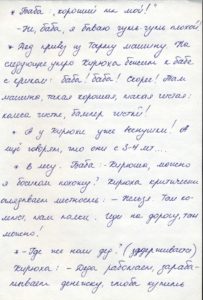 * Баба: "хороший ты мой!"
- Не, баба, я бываю чуть-чуть плохой.
* Дед привёз из гаража машину. На
следующее утро Кирюха бежит к бабе
с криком: баба! баба! Скорее! Там
машина, такая хорошая, такая чистая:
колёса чистые, бампер чистый!
* А у Кирюхи уже веснушки! А
ещё говорят, что они с 3-4 лет...
* В лесу. Баба: - Кирюша, можно
я босиком похожу? Кирюха критически
оглядывает местность: - Нельзя. Там ко-
лючки, там палки. Иди на дорогу, там
можно!
* - Где же наш дед? (задерживается)
Кирюха: - Деда работает, зараба-
тывает денежку, чтобы купить